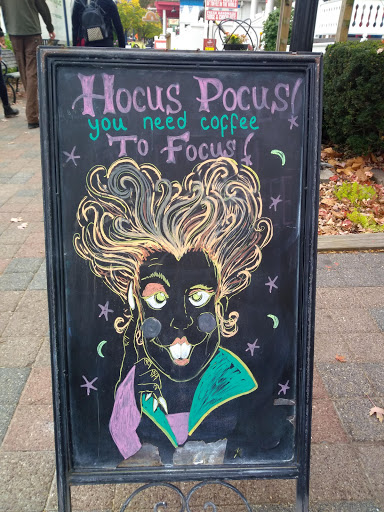 Hocus Pocus!
you need coffee
To Focus!